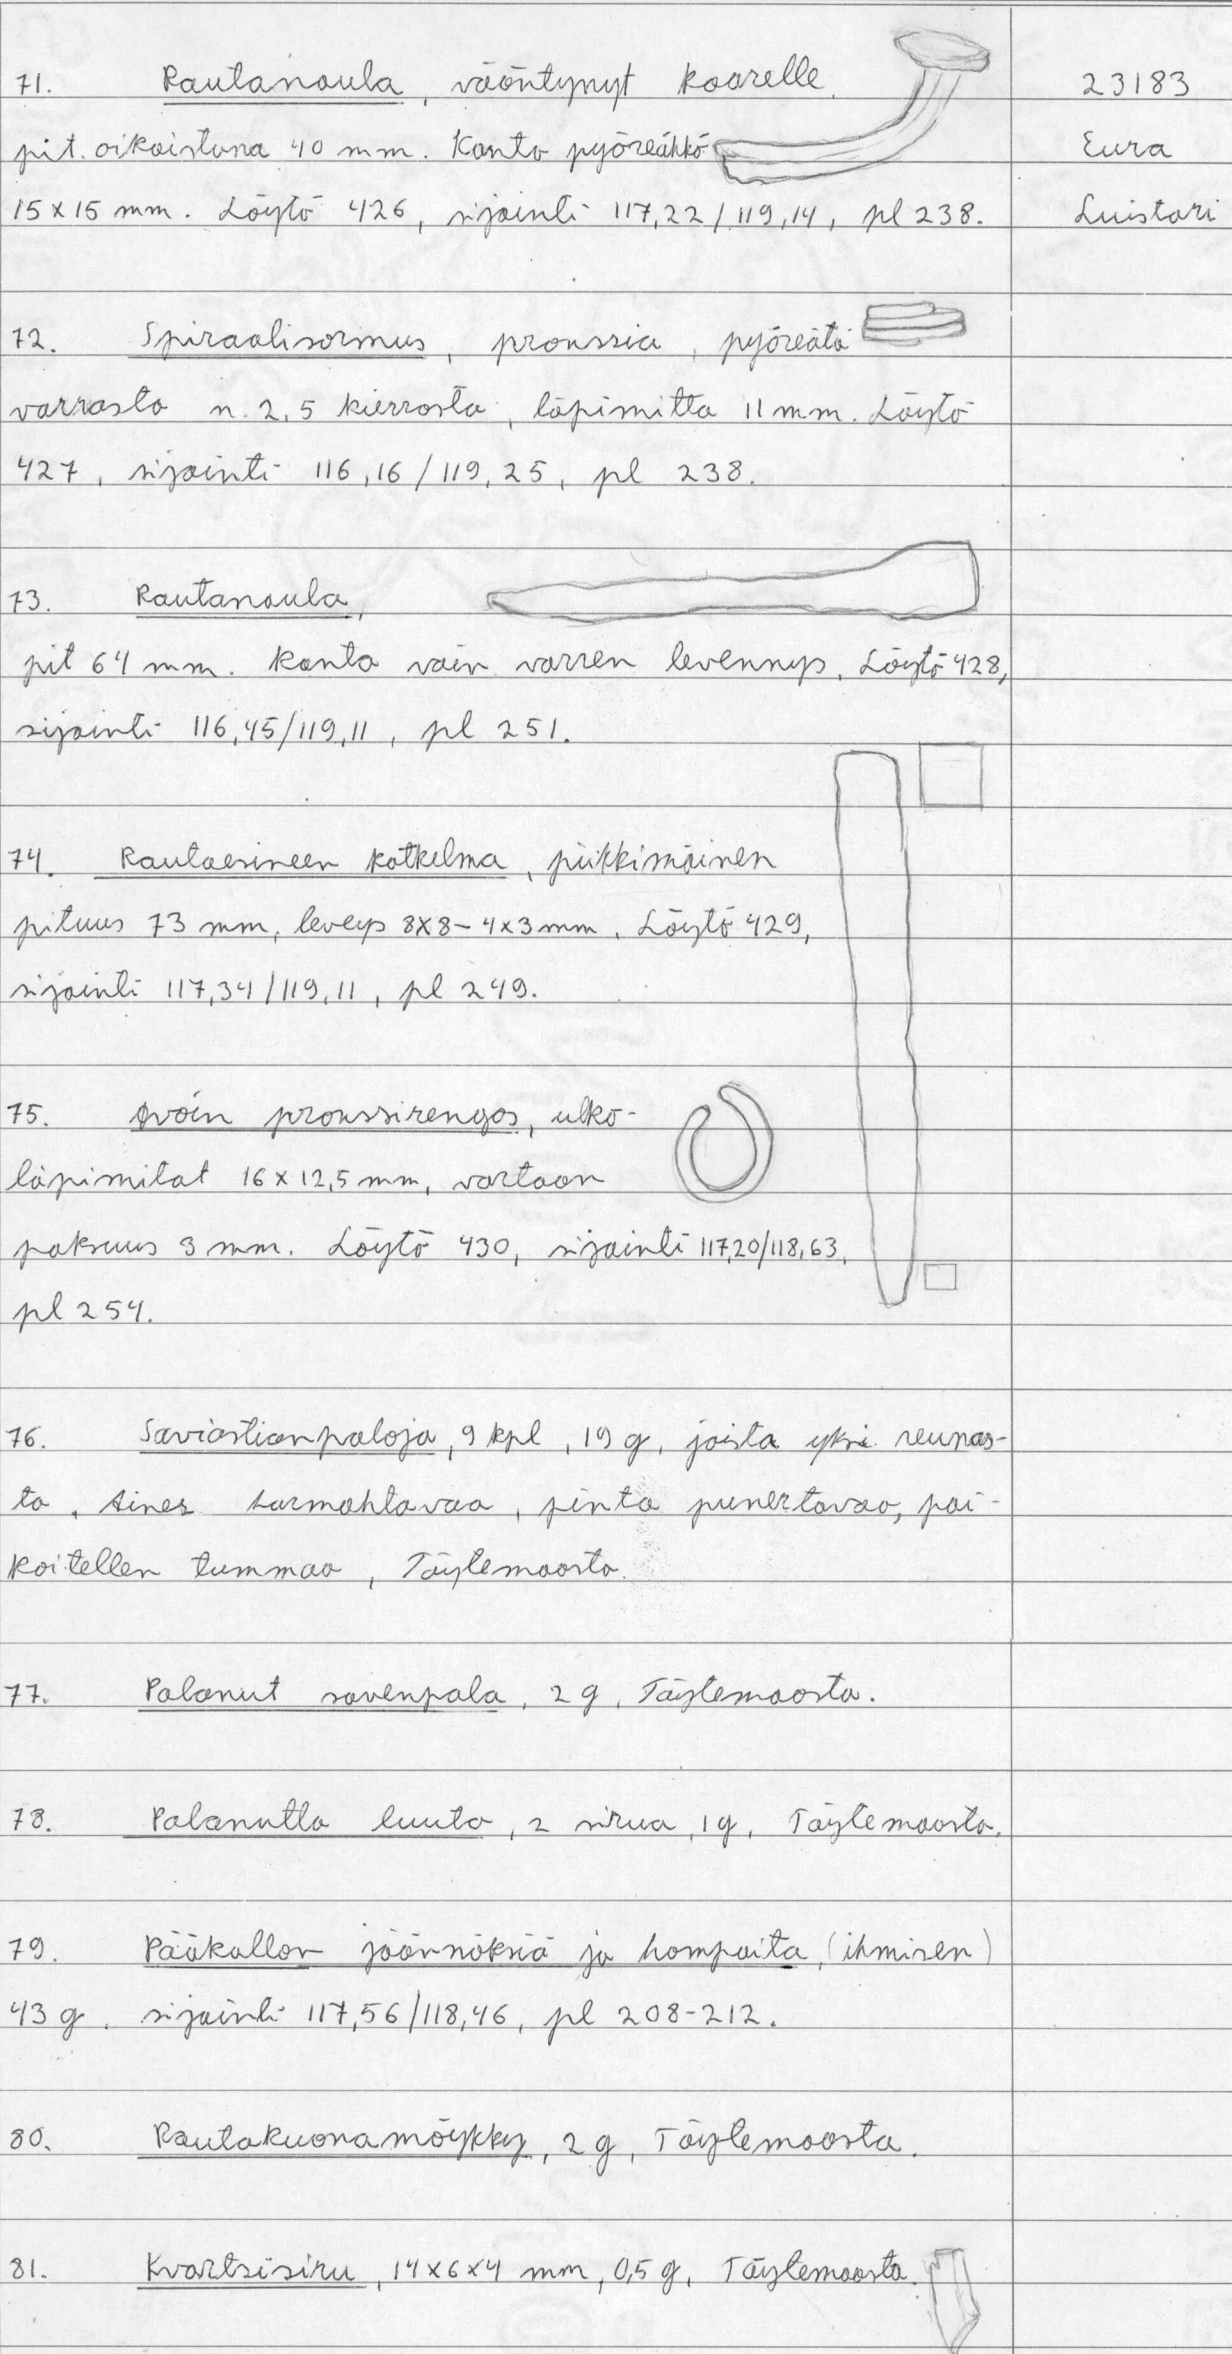 71. Rautanaula, vääntynyt kaarelle,
pit. oikaistuna 40 mm. Kanta pyöreähkö
15x15 mm. Löytö 426, sijainti 117,22/119,14, pl 238.
23183
Eura
Luistari
72. Spiraalisormus, pronssia, pyöreätä
varrasta n. 2,5 kierrosta, läpimitta 11 mm. Löytö
427, sijainti 116,16/119,25, pl 238.
73. Rautanaula,
pit 64 mm. Kanta vain varren levennys. Löytö 428,
sijainti 116,45/119,11, pl 251.
74. Rautaesineen katkelma, piikkimäinen
pituus 73 mm, leveys 8x8-4x3 mm. Löytö 429,
sijainti 117,34/119,11, pl 249.
75. Avoin pronssirengas, ulko-
läpimitat 16x12,5 mm, vartaan
paksuus 3 mm. Löytö 430, sijainti 117,20/118,63,
pl 254.
76. Saviastianpaloja, 9 kpl, 19 g, joista yksi reunas-
ta. Aines harmahtavaa, pinta punertavaa, pai-
koitellen tummaa, Täytemaasta.
77. Palanut savenpala, 2 g, Täytemaasta.
78. Palanutta luuta, 2 sirua, 1 g, Täytemaasta.
79. Pääkallon jäännöksiä ja hampaita, (ihmisen)
43 g. sijainti 117,56/118,46, pl 208-212.
80. Rautakuonamöykky, 2 g, Täytemaasta.
81. Kvartsisiru, 14x6x4 mm, 0,5 g, Täytemaasta.